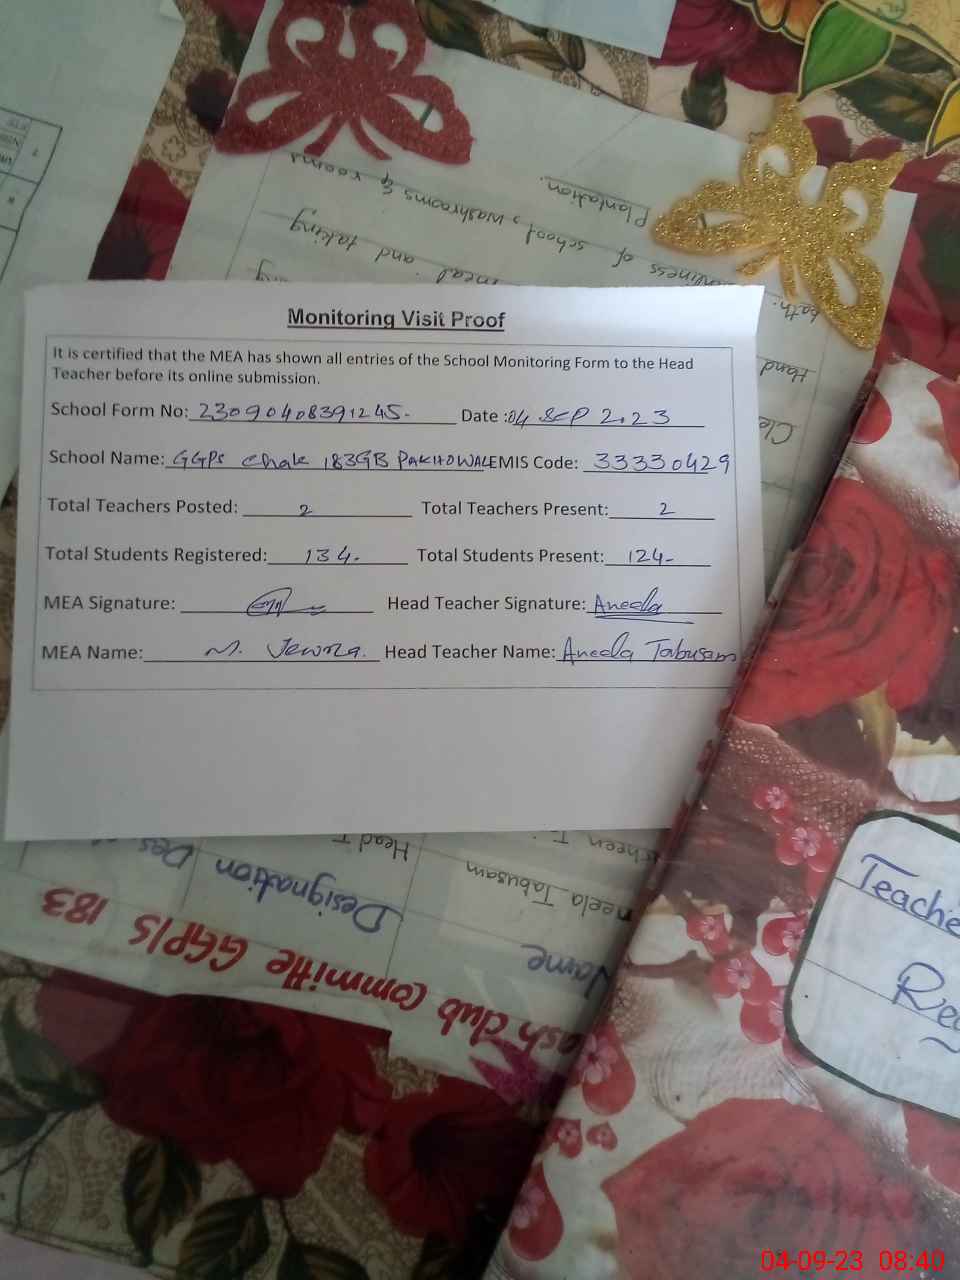 Monitoring Visit Proof
It is certified that the MEA has shown all entries of the School Monitoring Form to the Head
Teacher before its online submission.
School Form No: 23090408391245. Date : 04 SEP 2023
School Name: GGPS Chak 183GB PAKHOWAL EMIS Code: 33330429
Total Teachers Posted: 2 Total Teachers Present: 2
Total Students Registered: 134. Total Students Present: 124-
MEA Signature: Head Teacher Signature: Aneela
MEA Name: M. Head Teacher Name: Aneela Tabusam
Plantation.
of school, washrooms & rooms
meal and taking
Hand
ash club committe GGP/S 183
Name Designation Des
neela Tabusam Head T
Teache
Reg
04-09-23 08:40